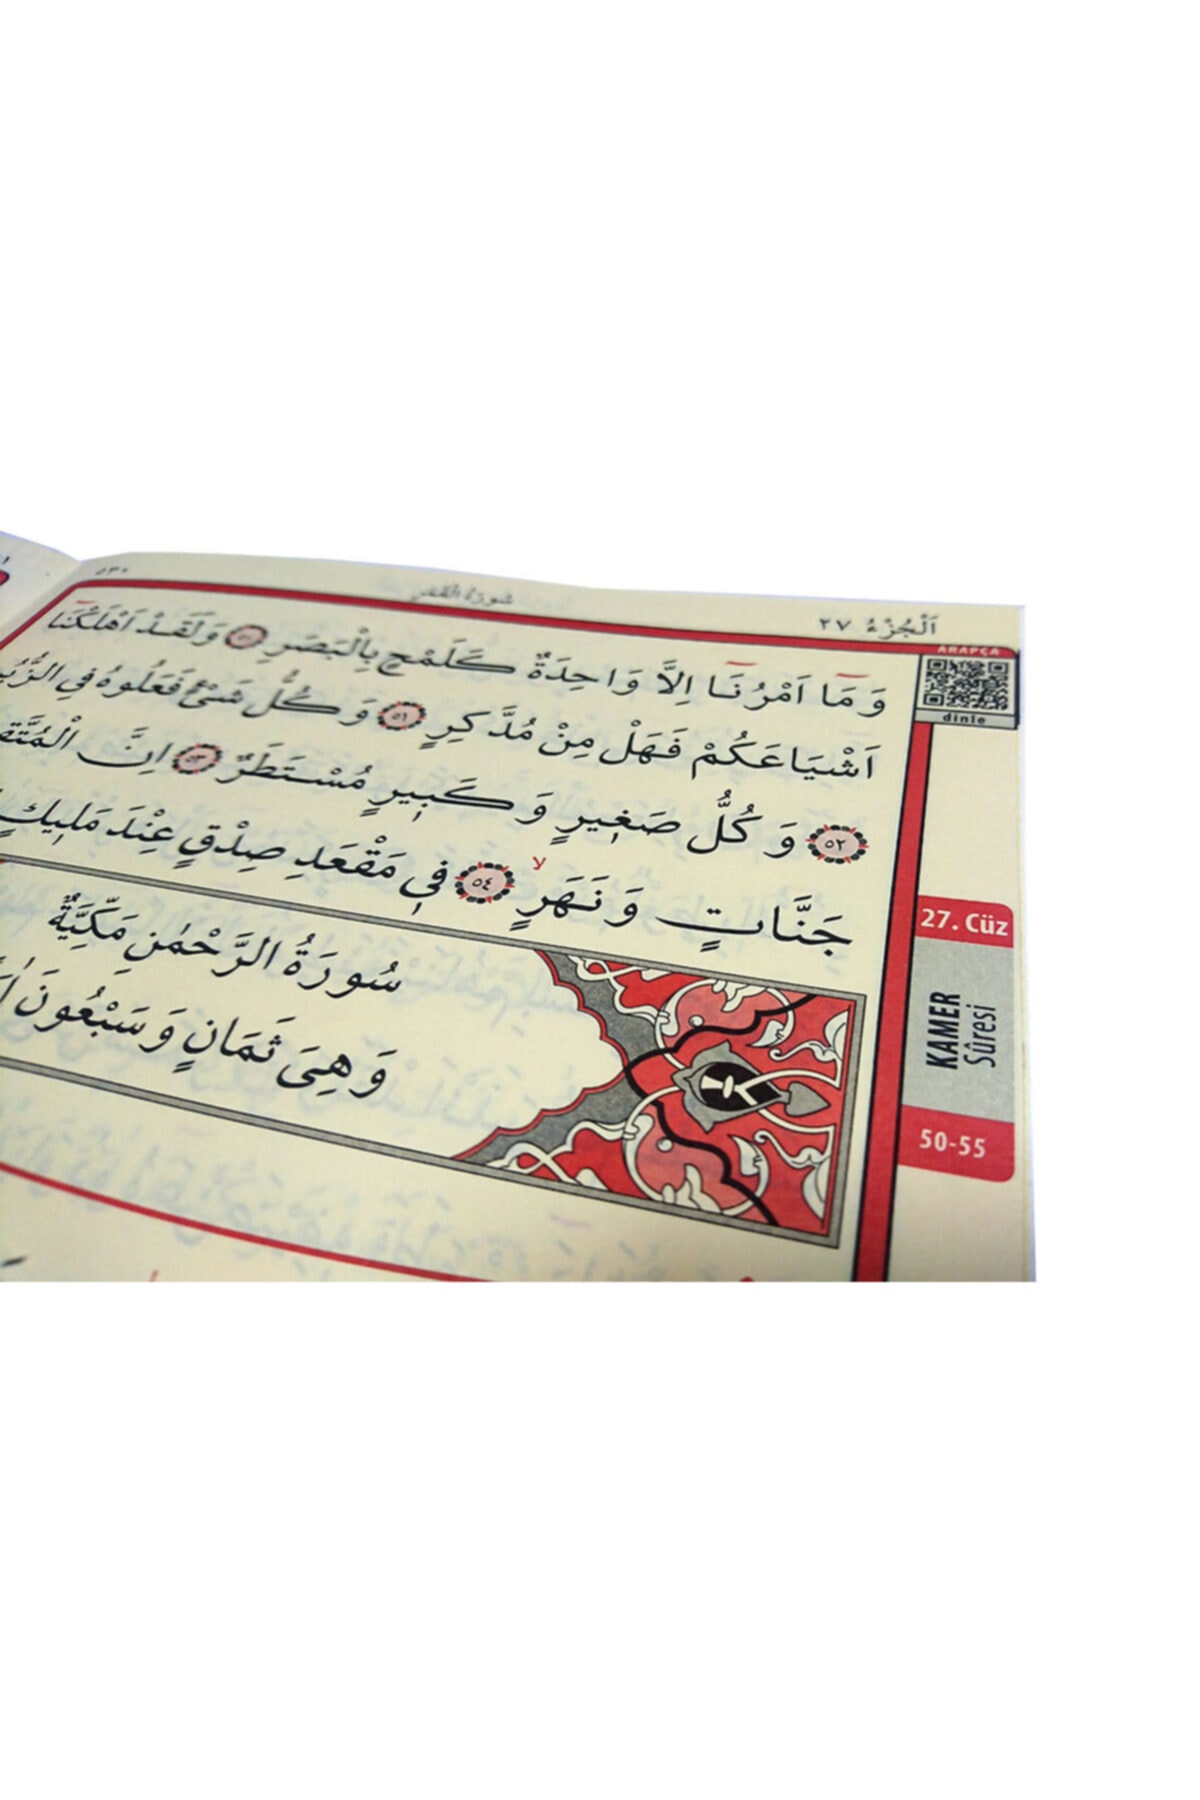 اَلْجُزْءُ ٢٧
سُورَةُ الْقَمَرِ
٥٣٠
وَمَٓا اَمْرُنَٓا اِلَّا وَاحِدَةٌ كَلَمْحٍ بِالْبَصَرِ ٥٠ وَلَقَدْ اَهْلَكْنَٓا
اَشْيَاعَكُمْ فَهَلْ مِنْ مُدَّكِرٍ ٥١ وَكُلُّ شَيْءٍ فَعَلُوهُ فِي
٥٢ وَكُلُّ صَغٖيرٍ وَكَبٖيرٍ مُسْتَطَرٌ ٥٣ اِنَّ
جَنَّاتٍ وَنَهَرٍۙ ٥٤ فٖي مَقْعَدِ صِدْقٍ عِنْدَ مَلٖيكٍ
سُورَةُ الرَّحْمٰنِ مَكِّيَّةٌ
وَهِيَ ثَمَانٍ وَسَبْعُونَ
ARAPÇA
dinle
27. Cüz
KAMER
Sûresi
50-55